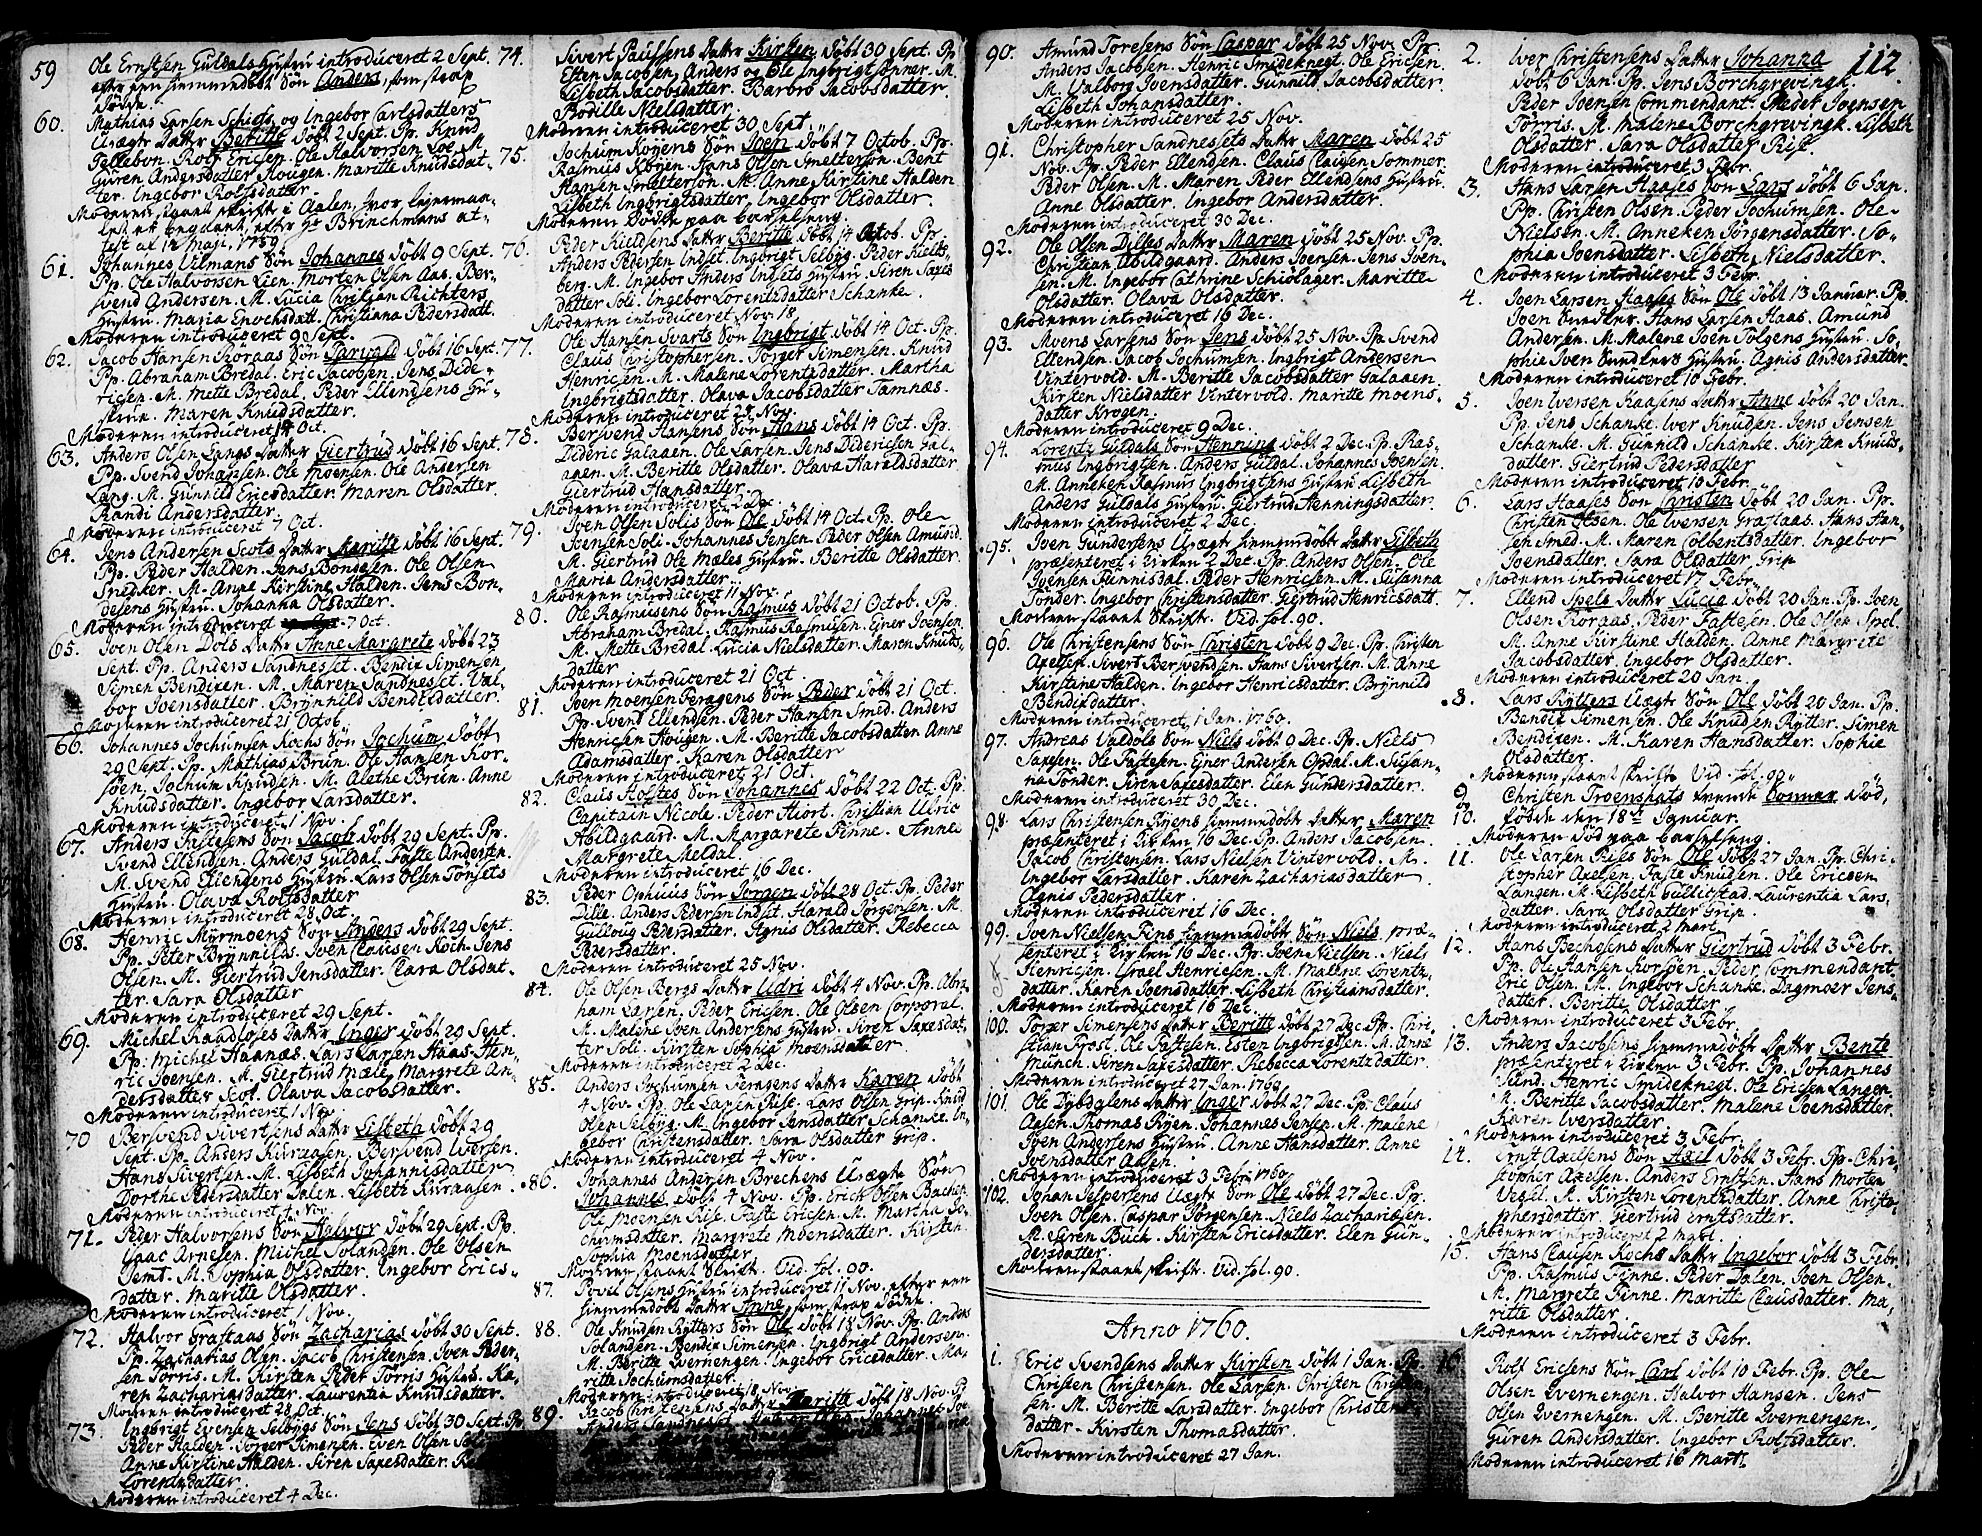 59 Ole Ernstsen Guldals Hustru introduceret 2 Sept.
efter een hiemmedøbt Søn Anders, som strax
døde.
60. Mathias Larsen Schiefs og Ingebor Carlsdatters
Uægte Datter Beritte døbt 2 Sept. Pp. Knud
Tellebon. Rolf Ericsen. Ole Halvorsen Loe. M.
Guren Andersdatter Hougen. Maritte Knudsdat-
ter. Ingebor Rolfsdatter.
Moderen staaet skrifte i Aalen, hvor leierman-
let er begaaet, efter Hr Brinchmans at-
test af 12 Maji 1759.
61. Johannes Vilmans Søn Johannes døbt 9 Sept.
Pp. Ole Halvorsen Lien. Morten Olsen Aas. Ber-
svend Andersen. M. Lucia Christian Richters
Hustru. Maria Enochsdatt. Christiana Pedersdatt.
Moderen introduceret 9 Sept.
62. Jacob Hansen Koraas Søn Tarvald døbt 16 Sept.
Pp. Abraham Bredal. Eric Jacobsen. Jens Dide-
ricsen. M. Mette Bredal. Peder Ellendsens Hu-
strue. Maren Knudsdatter.
Moderen introduceret 14 Oct.
63. Anders Olsen Langs Datter Giertrud døbt 16 Sept.
Pp. Svend Johansen. Ole Moensen. Ole Andersen
Lang. M. Gunnild Ericsdatter. Maren Olsdatter.
Randi Andersdatter.
Moderen introduceret 7 Oct.
64. Jens Andersen Scots Datter Maritte døbt 16 Sept.
Pp. Peder Halden. Jens Bondesen. Ole Olsen
Snedker. M. Anne Kirstine Halden. Jens Bon-
desens Hustru. Johanna Olsdatter.
Moderen introduceret 7 Oct.
65. Joen Olsen Dols Datter Anne Margrete døbt 23
Sept. Pp. Anders Sandnesset. Bendix Simensen
Simen Bendixen. M. Maren Sandnesset. Val-
bor Joensdatter. Brynnild Bendixdatter.
Moderen introduceret 21 Octob.
66. Johannes Jochumsen Kochs Søn Jochum døbt
29 Sept. Pp. Mathias Brun. Ole Hansen Kor-
søen. Jochum Knudsen. M. Alethe Brun. Anne
Knudsdatter. Ingebor Larsdatter.
Moderen introduceret 1 Nov.
67. Anders Fastesens Søn Jacob døbt 29 Sept. Pp.
Svend Ellendsen. Anders Guldal. Faste Andersen.
M. Svend Ellendsens Hustru. Lars Olsen Tønsets
Hustru. Olava Rolfsdatter
Moderen introduceret 28 Oct.
68. Henric Myrmoens Søn Anders døbt 29 Sept.
Pp. Peter Brynnilds. Joen Clausen Koch. Jens
Olsen. M. Giertrud Jensdatter. Clara Olsdat-
ter. Sara Olsdatter
Moderen introduceret 29 Sept.
69. Michel Raadloses Datter Inger døbt 29 Sept.
Pp. Michel Haanæs. Lars Larsen Haas. Hen-
ric Joensen. M. Giertrud Mæle. Margrete An-
dersdatter Scot. Olava Jacobsdatter.
Moderen introduceret 1 Nov.
70 Bersvend Sivertsens Datter Lisbeth døbt 29
Sept. Pp. Anders Kuraasen. Bersvend Iversen.
Hans Sivertsen. M. Lisbeth Johannisdatter
Dorthe Pedersdatter Dalen. Lisbeth Kuraasen.
Moderen introduceret 4 Nov.
71. Peder Halvorsens Søn Halvor døbt 29 Sept. Pp.
Isaac Arnesen. Michel Solansen. Ole Olsen
Jemt. M. Sophia Olsdatter. Ingebor Erics-
datter. Maritte Olsdatter
Moderen introduceret 1 Nov.
72. Halvor Graftaas Søn Zacharias døbt 30 Sept.
Pp. Zacharias Olsen. Jacob Christensen. Joen Peder-
sen Torris. M. Kirsten Peder Torris Hustru. Ka-
ren Zachariasdatter. Laurentia Knudsdatter.
Moderen introduceret 28 Oct.
73. Ingbrigt Evensen Selbygs Søn Jens døbt 30 Sept. Pp.
Peder Halden. Jørger Simensen. Even Olsen
Anne Kirstine Halden. Siren Saxesdatter.
Lorentzdatter.
Moderen introduceret 4 Dec.
74. Sivert Paulsens Datter Kirsten døbt 30 Sept. Pp.
Esten Jacobsen, Anders og Ole Ingbrigtsønner. M.
Lisbeth Jacobsdatter. Barbro Jacobsdatter.
Bodille Nielsdatter.
Moderen introduceret 30 Sept.
75. Jochum Konens Søn Joen døbt 7 Octob. Pp.
Rasmus Konen. Hans Olsen Smelterson. Bent
Hansen Smelterson. M. Anne Kirstine Halden
Lisbeth Ingbrigtsdatter. Ingebor Olsdatter
Moderen døde paa barselseng.
76. Peder Kieldsens Datter Beritte døbt 14 Octob. Pp.
Anders Pedersen Indset. Ingbrigt Selbyg. Peder Kields-
berg. M. Ingebor Anders Indsets Hustru. Siren Saxes
datter Soli. Ingebor Lorentzdatter Schanke.
Moderen introduceret Nov. 18
77. Ole Hansen Svarts Søn Ingbrigt døbt 14 Oct. Pp.
Claus Christophersen. Jørger Simensen. Knud
Henricsen. M. Malene Lorentzdatter. Martha
Ingbrigtsdatter. Olava Jacobsdatter Tamnæs.
Moderen introduceret 25 Nov.
78. Bersvend Hansens Søn Hans døbt 14 Oct. Pp.
Dideric Galaaen. Ole Larsen. Jens Didericsen Gal-
aaen. M. Beritte Olsdatter. Olava Haraldsdatter
Giertrud Hansdatter
Moderen introduceret 2 Dec.
79. Joen Olsen Solis Søn Ole døbt 14 Oct. Pp. Ole
Joensen Soli. Johannes Jensen. Peder Olsen Amund.
M. Giertrud Ole Mæles Hustru. Beritte Olsdatter.
Maria Andersdatter
Moderen introduceret 11 Nov.
80. Ole Rasmusens Søn Rasmus døbt 21 Octob. Pp.
Abraham Bredal. Rasmus Rasmusen. Einer Joensen
M. Mette Bredal. Lucia Nielsdatter. Maren Knuds-
datter
Moderen introduceret 21 Oct.
81. Joen Moensen Feragens Søn Peder døbt 21 Oct.
Pp. Svend Ellendsen. Peder Hansen Smed. Anders
Henricsen Hougen. M. Beritte Jacobsdatter. Anne
Adamsdatter. Karen Olsdatter
Moderen introduceret 21 Oct.
82. Claus Holstes Søn Johannes døbt 22 Oct. Pp.
Capitain Nicole. Peder Hiort. Christian Ulric
Abildgaard. M. Margarete Finne. Anne
Margrete Meldal.
Moderen introduceret 16 Dec.
83. Peder Ophuus Søn Jørgen døbt 28 Oct. Pp. Peder
Dille. Anders Pedersen Indset. Harald Jørgensen. M.
Gullovig Pedersdatter. Agnis Olsdatter. Rebecca
Pedersdatter
Moderen introduceret 25 Nov.
84. Ole Olsen Bergs Datter Udri døbt 4 Nov. Pp. Abra-
ham Larsen. Peder Ericsen. Ole Olsen Corporal.
M. Malene Joen Andersens Hustru. Siren Saxesdat-
ter Soli. Kirsten Sophia Moensdatter
Moderen introduceret 2 Dec.
85. Anders Jochumsen Feragens Datter Karen døbt
4 Nov. Pp. Ole Larsen Rise. Lars Olsen Grip. Knud
Olsen Selbyg. M. Ingebor Jensdatter Schanke. In-
gebor Christensdatter. Sara Olsdatter Grip.
Moderen introduceret 4 Nov.
86. Johannes Andersen Brechens Uægte Søn
Johannes døbt 4 Nov. Pp. Erich Olsen Bachen
Ole Moensen Rise. Faste Ericsen. M. Martha Jo-
chumsdatter. Margrete Moensdatter. Kirsten
Sophia Moensdatter
Moderen staaet Skrift. Vid. fol. 90.
87. Povel Olsens Hustru introduceret 11 Nov. efter een
hiemmedøbt Datter Anne, som strax døde.
88. Ole Knudsen Rytters Søn Ole døbt 18 Nov. Pp. Anders
Solansen. Bendix Simensen. Ingbrigt Andersen.
M. Beritte Qvernengen. Ingebor Ericsdatter. Ma-
ritte Jochumsdatter.
Moderen introduceret 18 Nov.
89. Jacob Christensens Datter Maritte døbt 18 Nov. Pp.
90. Amund Toresens Søn Caspar døbt 25 Nov. Pp.
Anders Jacobsen. Henric Smideknegt. Ole Ericsen.
M. Valborg Joensdatter. Gunnild Jacobsdatter.
Lisbeth Johansdatter.
Moderen introduceret 25 Nov.
91. Christopher Sandnessets Datter Maren døbt 25
Nov. Pp. Peder Ellendsen. Claus Clausen Sommer.
Peder Olsen. M. Maren Peder Ellendsens Hustru.
Anne Olsdatter. Ingebor Andersdatter.
Moderen introduceret 30 Dec.
92. Ole Olsen Dilles Datter Maren døbt 25 Nov. Pp.
Christian Abildgaard. Anders Joensen. Jens Joen-
sen. M. Ingebor Cathrine Schiølager. Maritte
Olsdatter. Olava Olsdatter.
Moderen introduceret 16 Dec.
93. Moens Larsens Søn Jens døbt 25 Nov. Pp. Svend
Ellendsen. Jacob Jochumsen. Ingbrigt Andersen
Vintervold. M. Beritte Jacobsdatter Galaaen.
Kirsten Nielsdatter Vintervold. Maritte Moens-
datter Krogen.
Moderen introduceret 9 Dec.
94. Lorentz Guldals Søn Henning døbt 2 Dec. Pp. Ras-
mus Ingbrigtsen. Anders Guldal. Johannes Joensen.
M. Anneken Rasmus Ingbrigtsens Hustru. Lisbeth
Anders Guldals Hustru. Giertrud Henningsdatter.
Moderen introduceret 2 Dec.
95. Joen Gundersens Uægte hiemmedøbt Datter Lisbeth
præsenteret i Kirken 2 Dec. Pp. Anders Olsen. Ole
Joensen Funnisdal. Peder Henricsen. M. Susanna
Tonder. Ingebor Christensdatter. Giertrud Henricsdatt.
Moderen staaet Skrifte. Vid. fol. 90.
96. Ole Christensens Søn Christen døbt 9 Dec. Pp. Christen
Axelsen. Sivert Bersvendsen. Hans Sivertsen. M. Anne
Kirstine Halden. Ingebor Henricsdatter. Brynnild
Bendixdatter.
Moderen introduceret 1 Jan. 1760.
97. Andreas Valdols Søn Niels døbt 9 Dec. Pp. Niels
Saxesen. Ole Fastesen. Einer Andersen Opdal. M. Susan-
na Tonder. Siren Saxesdatter. Elen Gundersdatter.
Moderen introduceret 30 Dec.
98. Lars Christensen Ryens hiemmedøbt Datter Maren
præsenteret i Kirken 16 Dec. Pp. Anders Jacobsen.
Jacob Christensen. Lars Nielsen Vintervold. M.
Ingebor Larsdatter. Karen Zachariasdatter
Agnis Pedersdatter.
Moderen introduceret 16 Dec.
99. Joen Nielsen Fins hiemmedøbt Søn Niels præ-
senteret i Kirken 16 Dec. Pp. Joen Nielsen. Niels
Henricsen. Israel Henricsen. M. Malene Lorentz-
datter. Karen Joensdatter. Lisbeth Christiansdatter.
Moderen introduceret 16 Dec.
100. Jørger Simensens Datter Beritte døbt 27 Dec. Pp. Chri-
stian Prost. Ole Fastesen. Esten Ingbrigtsen. M. Anne
Munch. Siren Saxesdatter. Rebecca Lorentzdatter.
Moderen introduceret 27 Jan. 1760
101. Ole Dybdalens Datter Inger døbt 27 Dec. Pp. Claus
Aasen. Thomas Ryen. Johannes Jensen. M. Malene
Joen Andersens Hustru. Anne Hansdatter. Anne
Joensdatter Aasen.
Moderen introduceret 3 Febr. 1760
102. Johan Jespersens Uægte Søn Ole døbt 27 Dec. Pp.
Joen Olsen. Caspar Jørgensen. Niels Zachariæsen.
M. Karen Buch. Kirsten Ericsdatter. Elen Gun-
dersdatter.
Moderen staaet skrift. Vid. fol. 90.
Anno 1760.
1. Eric Svendsens Datter Kirsten døbt 1 Jan. Pp.
Christen Christensen. Ole Larsen. Christen Christen-
sen. M. Beritte Larsdatter. Ingebor Christens-
datter. Kirsten Thomasdatter.
Moderen introduceret 27 Jan.
112
2. Iver Christensens Datter Johanna
døbt 6 Jan. Pp. Jens Borchgrevingk.
Peder Joensen Commendant. Peder Joensen
Tørris. M. Malene Borchgrevingk. Lisbeth
Olsdatter. Sara Olsdatter Rise.
Moderen introduceret 3 Febr.
3. Hans Larsen Haases Søn Lars døbt 6 Jan.
Pp. Christen Olsen. Peder Jochumsen. Ole
Nielsen. M. Anneken Jørgensdatter. So-
phia Joensdatter. Lisbeth Nielsdatter.
Moderen introduceret 3 Febr.
4. Joen Larsen Haases Søn Ole døbt 13 Januar. Pp.
Joen Snedker. Hans Larsen Haas. Amund
Andersen. M. Malene Joen Tolgens Hustru. So-
phie Joen Snedkers Hustru. Agnis Andersdatter.
Moderen introduceret 10 Febr.
5. Joen Iversen Kaasens Datter Anne døbt 20 Jan.
Pp. Jens Schanke. Iver Knudsen. Jens Jensen
Schanke. M. Gunnild Schanke. Kirsten Knuds-
datter. Giertrud Pedersdatter
Moderen introduceret 10 Febr.
6. Lars Haases Søn Christen døbt 20 Jan. Pp.
Christen Olsen. Ole Iversen Graftaas. Hans Han-
sen Smed. M. Maren Colbentsdatter. Ingebor
Joensdatter. Sara Olsdatter Grip
Moderen introduceret 17 Febr.
7. Ellend Spels Datter Lucia døbt 20 Jan. Pp. Joen
Olsen Koraas. Peder Fastesen. Ole Olsen Spel.
M. Anne Kirstine Halden. Anne Margrete
Jacobsdatter. Ingebor Olsdatter.
Moderen introduceret 20 Jan.
8. Lars Rytters Uægte Søn Ole døbt 20 Jan. Pp.
Bendix Simensen. Ole Knudsen Rytter. Simen
Bendixen. M. Karen Hansdatter. Sophie
Olsdatter.
Moderen staaet skrifte Vid. fol. 90.
9 og 10. Christen Troenshats tvende Sonner død,
fødde den 18de Januar.
Moderen død paa barselseng.
11. Ole Larsen Rises Søn Ole døbt 27 Jan. Pp. Chri-
stopher Axelsen. Faste Knudsen. Ole Ericsen
Langen. M. Lisbeth Gullicstad. Laurentia Lars-
datter. Sara Olsdatter Grip.
Moderen introduceret 2 Mart.
12. Hans Bechosens Datter Giertrud døbt 3 Febr.
Pp. Ole Hansen Korsøen. Peder Commendant.
Eric Olsen. M. Ingebor Schanke. Dagmoer Jens-
datter. Beritte Olsdatter
Moderen introduceret 3 Febr.
13. Anders Jacobsens hiemmedøbt Datter Bente
præsenteret i Kirken 3 Febr. Pp. Johannes
Lund. Henric Smideknegt. Ole Ericsen Langen.
M. Beritte Jacobsdatter. Malene Joensdatter.
Karen Iversdatter
Moderen introduceret 3 Febr.
14. Ernst Axelsens Søn Axel døbt 3 Febr. Pp. Chri-
stopher Axelsen. Anders Erntsen. Hans Morten
Vesel. M. Kirsten Lorentzdatter. Anne Christo-
phersdatter. Giertrud Ernstsdatter.
Moderen introduceret 2 Mart.
15. Hans Clausen Kochs Datter Ingebor døbt 3 Febr.
Pp. Rasmus Finne. Peder Dalen. Joen Olsen.
M. Margrete Finne. Maritte Clausdatter. Ma-
ritte Olsdatter
Moderen introduceret 3 Febr.
16. Rolf Ericsens Søn Carl døbt 10 Febr. Pp. Ole
Olsen Qvernengen. Halvor Hansen. Jens
Olsen Qvernengen. M. Beritte Qvernengen.
Guren Andersdatter. Ingebor Rolfsdatter.
Moderen introduceret 16 Mart.